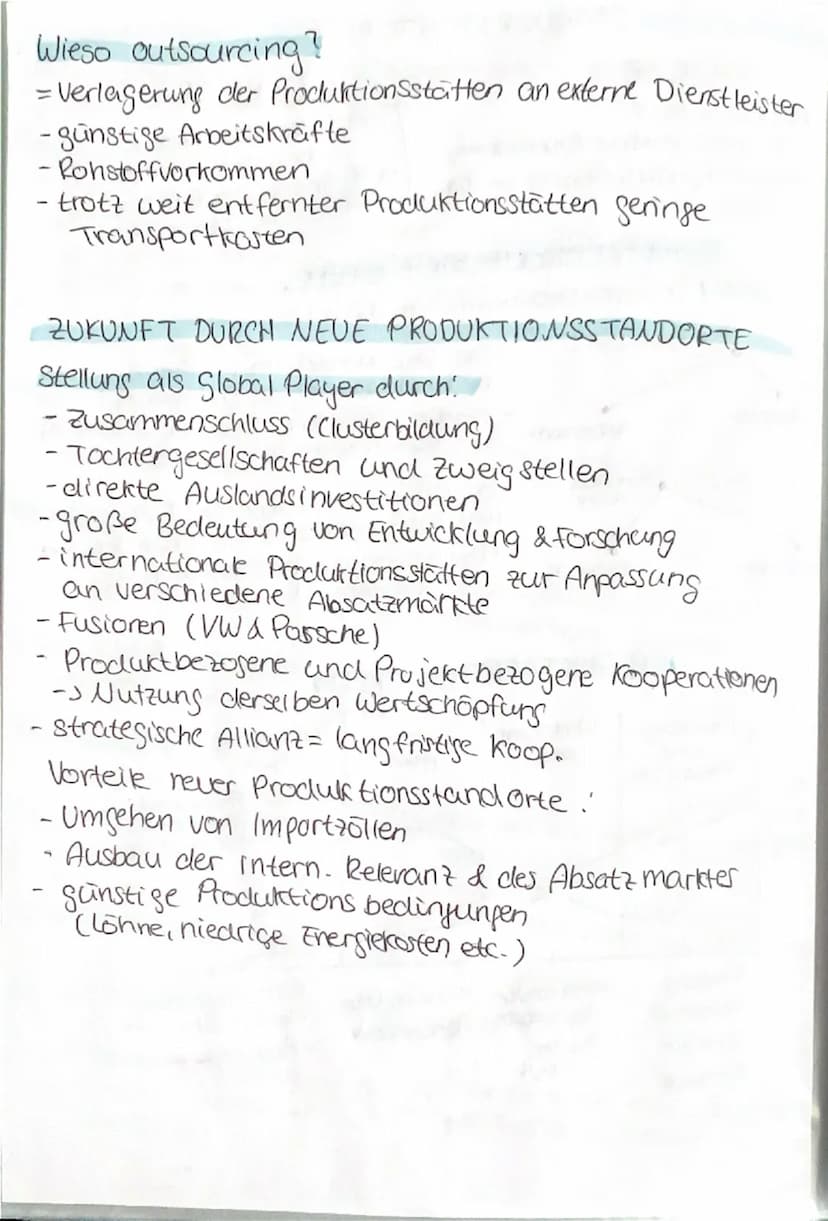 Wieso outsourcing?
= Verlagerung der Produktionsstätten an externe Dienstleister
- günstige Arbeitskräfte
- Rohstoffvorkommen
- trotz weit entfernter Produktionsstätten geringe
Transportkosten
ZUKUNFT DURCH NEUE PRODUKTIONSSTANDORTE
Stellung als Global Player durch:
- Zusammenschluss (Clusterbildung)
- Tochtergesellschaften und Zweigstellen
- direkte Auslandsinvestitionen
- große Bedeutung von Entwicklung & Forschung
- internationale Produktionsstätten zur Anpassung
an verschiedene Absatzmärkte
- Fusionen (VW & Porsche)
- Produktbezogene und Projektbezogene Kooperationen
-> Nutzung derselben Wertschöpfung
- strategische Allianz = langfristige Koop.
Vorteile neuer Produktionsstandorte:
- Umgehen von Importzöllen
- Ausbau der intern. Relevanz & des Absatzmarktes
- günstige Produktionsbedingungen
(Löhne, niedrige Energiekosten etc.)